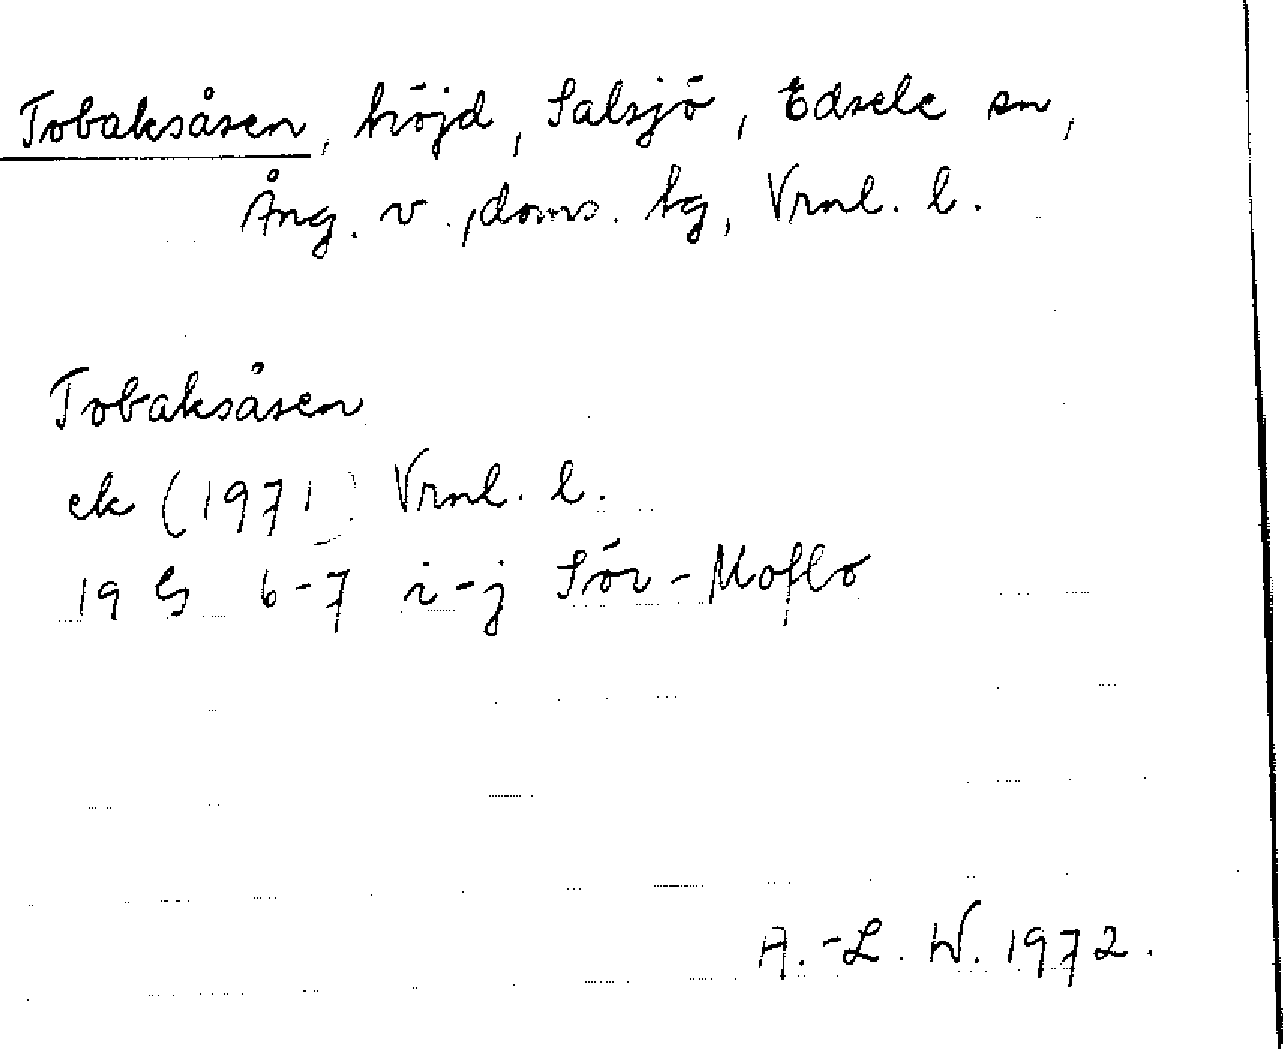 Tobaksåsen, höjd, Salsjö, Edsele sn,
Ång. v., doms. hg, Vrnl. l.
Tobaksåsen
ek (1971) Vrnl. l.
19 G 6-7 i-j Sör-Moflo
A.-L. W. 1972.